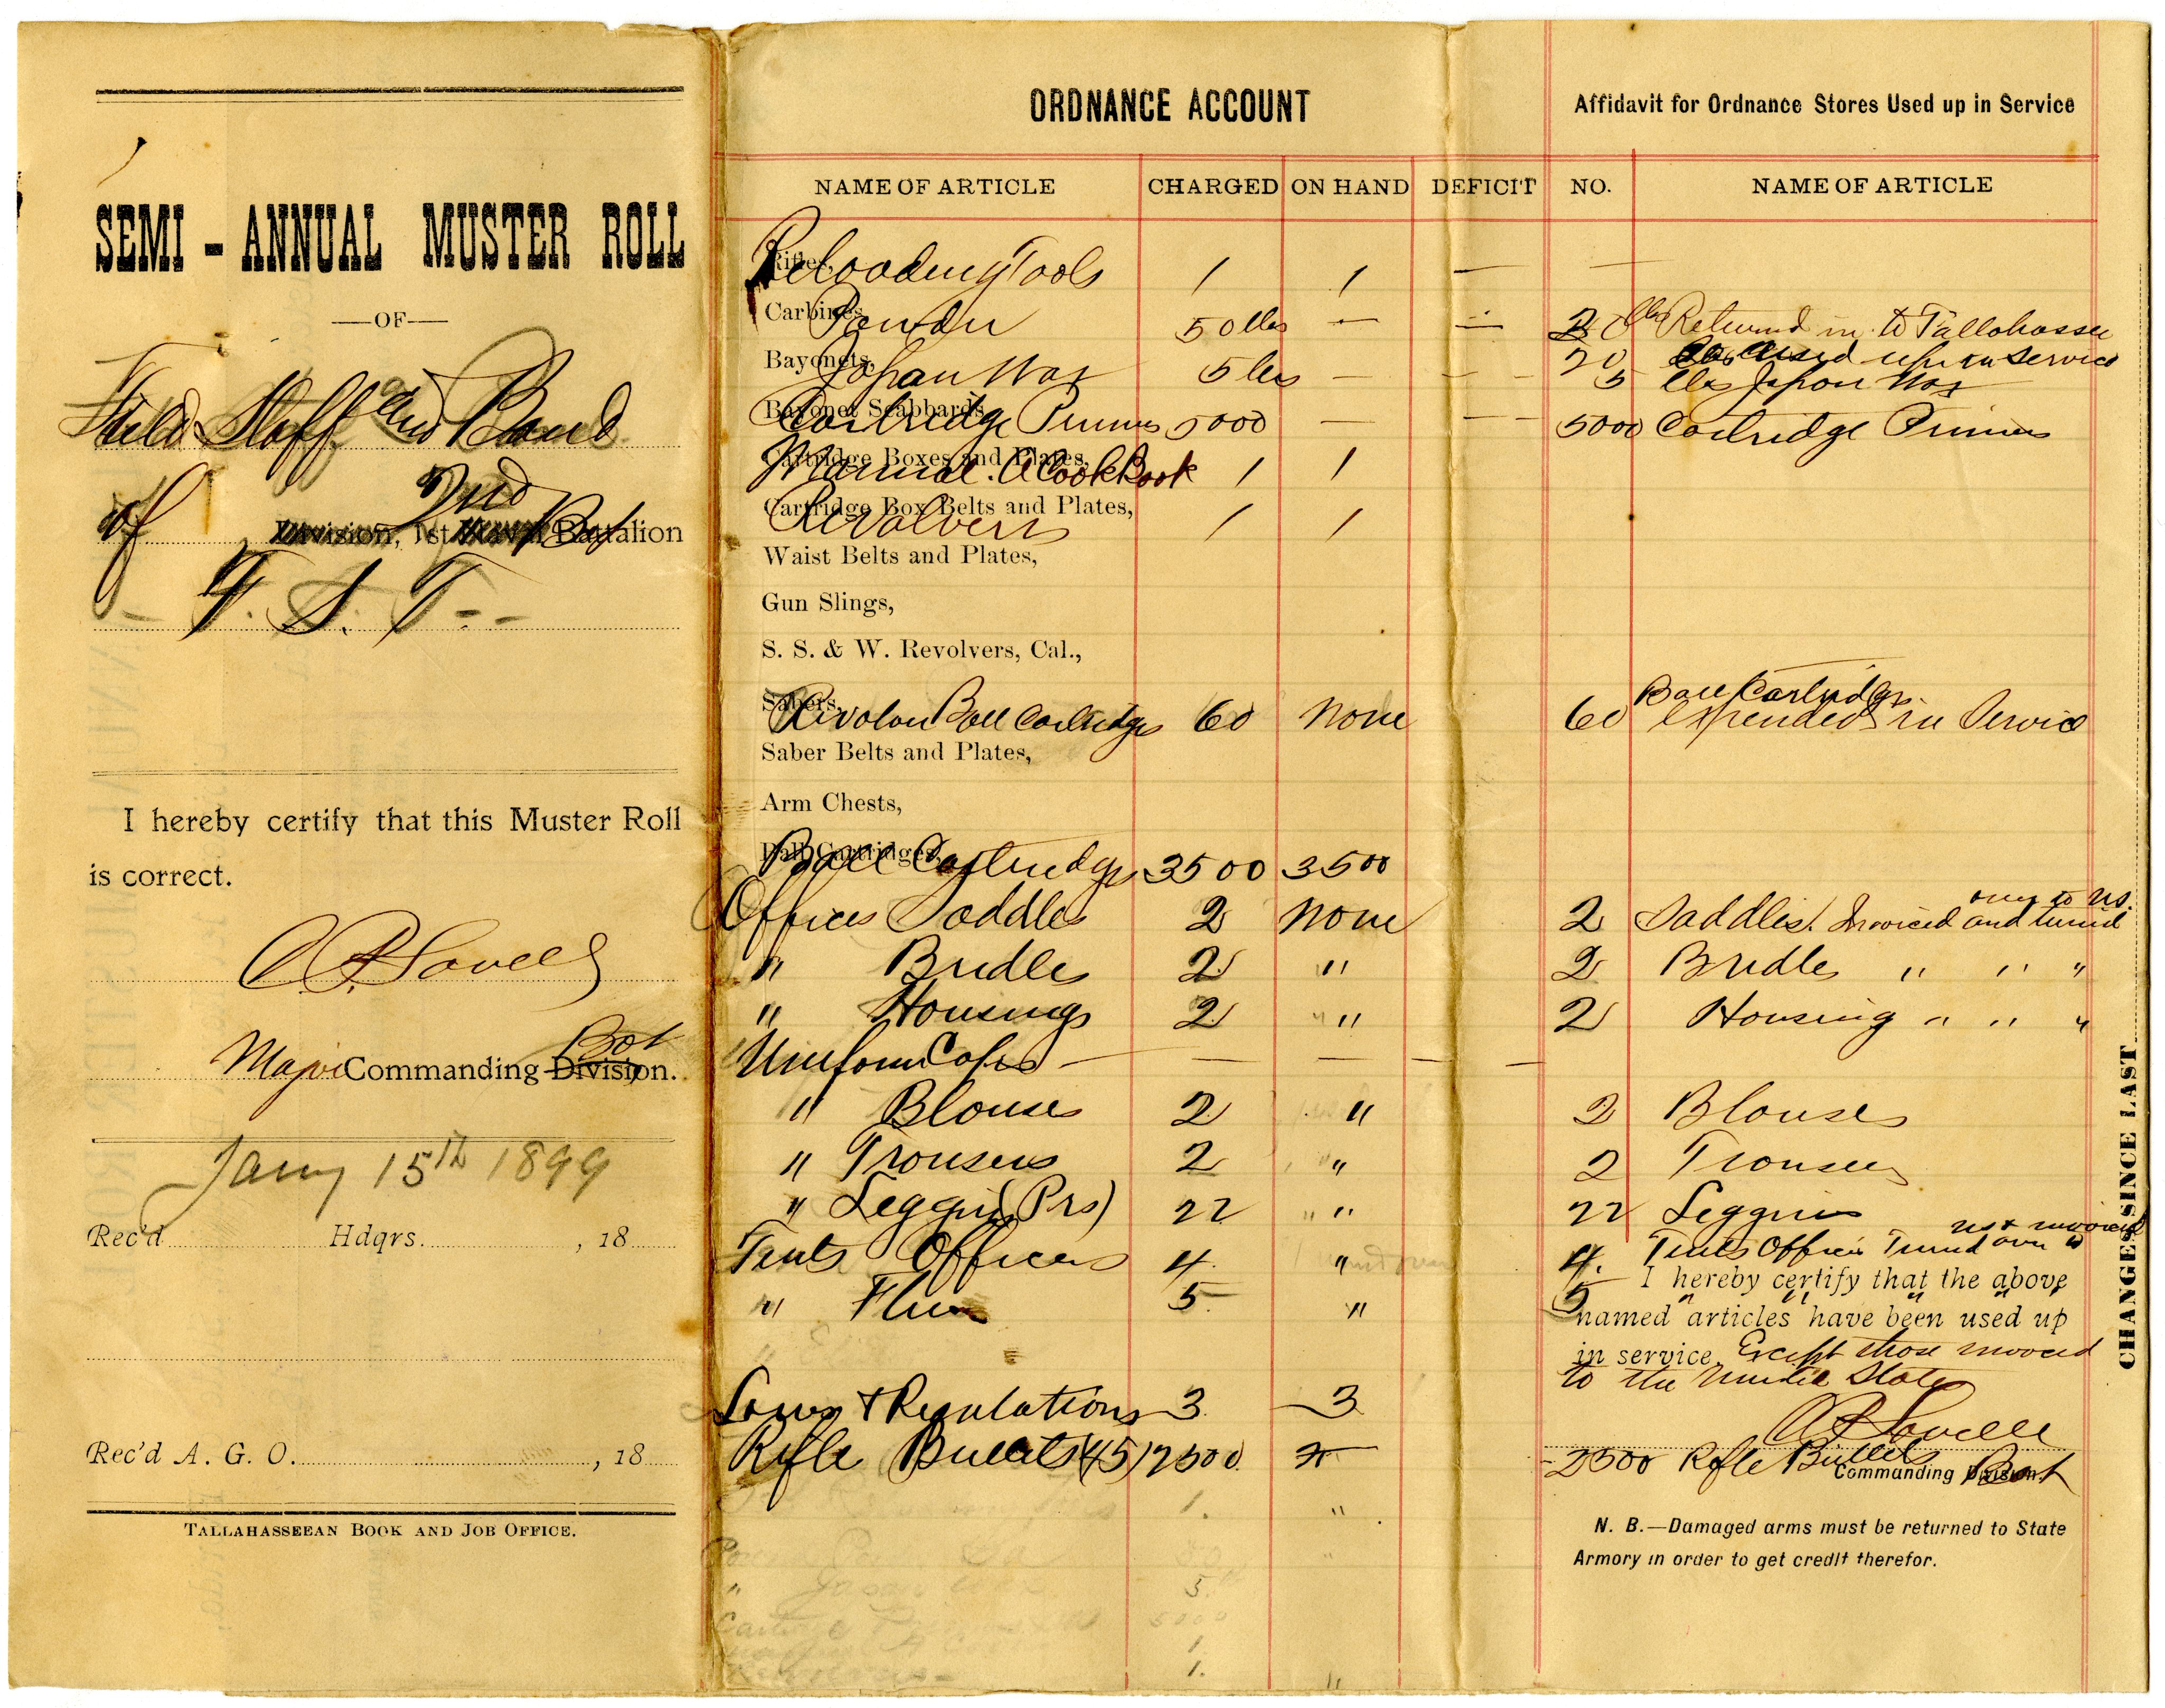 SEMI - ANNUAL MUSTER ROLL
—OF—
Field Staff and Band
of 2nd
Division, 1st Naval Battalion Bat
F. S. T.
I hereby certify that this Muster Roll
is correct.
C. R. Lovell
Major Commanding Division. Bat
Jany 15th 1899
Rec'd Hdqrs. , 18
Rec'd A. G. O. , 18
TALLAHASSEEAN BOOK AND JOB OFFICE.
ORDNANCE ACCOUNT
NAME OF ARTICLE CHARGED ON HAND DEFICIT
Rifles,
Reloading Tools 1 1 —
Carbines
Powder 50 lbs — —
Bayonets,
Japan Wax 5 lbs — —
Bayonet Scabbards
Cartridge Primers 5000 — —
Cartridge Boxes and Plates,
Manual. A Cook Book 1 1
Cartridge Box Belts and Plates,
Revolvers 1 1
Waist Belts and Plates,
Gun Slings,
S. S. & W. Revolvers, Cal.,
Sabers,
Revolver Ball Cartridges 60 None
Saber Belts and Plates,
Arm Chests,
Ball Cartridges,
Ball Cartridges 3500 3500
Officers Saddles 2 None
" Bridles 2 "
" Housings 2 "
Uniform Caps — — — —
" Blouses 2 "
" Trousers 2 "
" Leggins (Prs) 22 "
Tents Officers 4. "
" Flies 5 "
Laws & Regulations 3 3
Rifle Bullets (45) 2500
1. "
"
" Japan Wax 5
Cartridge 5000
1.
1. "
Affidavit for Ordnance Stores Used up in Service
NO. NAME OF ARTICLE
lbs Returned in to Tallahassee
20 lbs used up in Service
5 lbs Japon Wax
5000 Cartridge Primers
60 Ball Cartridges
expended in Service
2 Saddles. Invoiced and turned over to US.
2 Bridles " " "
2 Housing " " "
2 Blouses
2 Trousers
22 Leggins
4. Tents Officers Turned over &
I hereby certify that the above
5 " " " "
named articles have been used up
in service. Except those invoiced
to the United States
C R Lovell
2500 Rifle Bullets
Commanding Division. Bat
N. B.—Damaged arms must be returned to State
Armory in order to get credit therefor.
CHANGES SINCE LAST